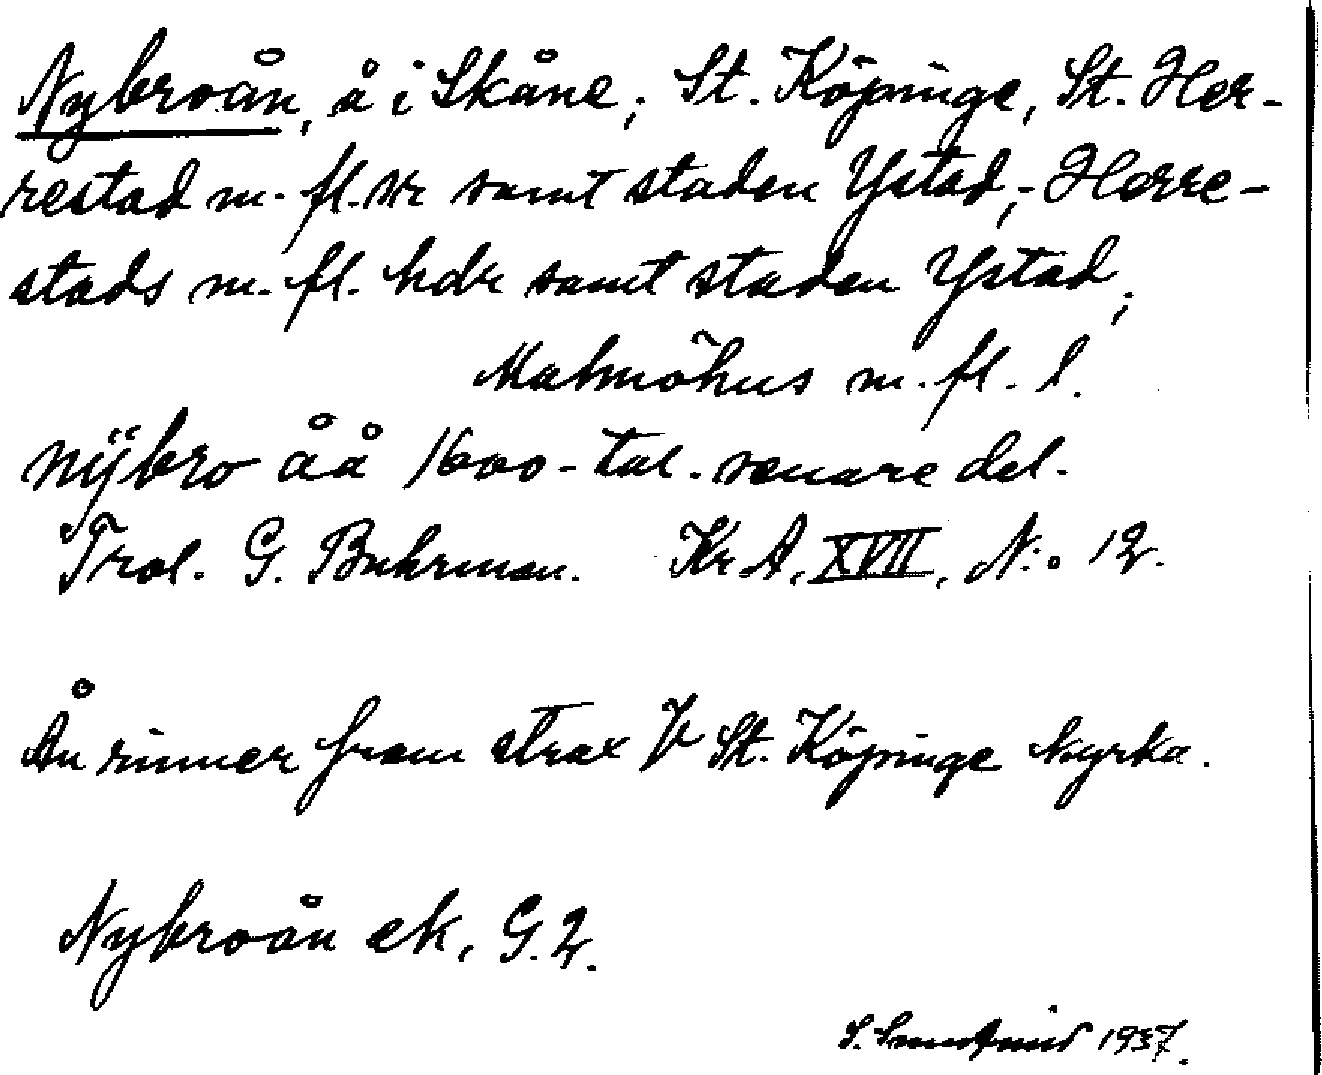 Nybroån, å i Skåne; St. Köpinge, St. Her-
restad m. fl. snr samt staden Ystad; Herre-
stads m. fl. hdr samt staden Ystad;
Malmöhus m. fl. l.
nÿbro åå 1600-tal. senare del.
Trol. G. Buhrman. Kr A, XVII, N:o 12.
Ån rinner fram strax V St. Köpinge kyrka.
Nybroån ek. G. 2.
S. 1937.